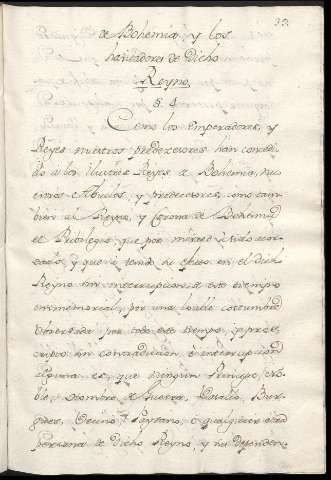 de Bohemia y los
havitadores de Dicho
Reyno
§. 1
Como los emperadores, y
Reyes nuestros predecesores han conce
dido a los ilustres Reyes de Bohemia, nu
estros Abuelos, y predecesores, como tam
bien al Reyno, y Corona de Bohemia
el Privilegio, que por
y que a tenido su efecto en el dicho
Reyno sin interrupcion a este tiempo
immemorial, por una loable costumbre
observada por todo este tiempo, y pres
cripto sin contradicion, e interrupcion
alguna es, que ningun Principe, No
ble, Hombre de Guerra, Bur
gues, o qualquier otra
persona de Dicho Reyno, y sus dependen